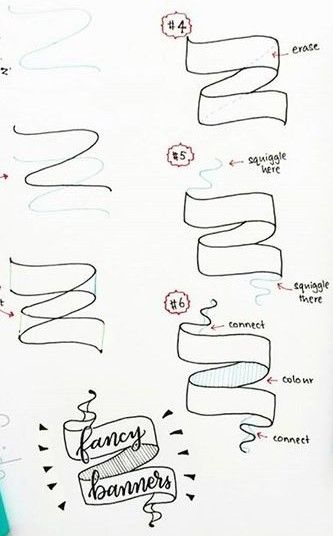 #4
erase
#5
squiggle
here
squiggle
there
#6
connect
colour
connect
fancy
banners